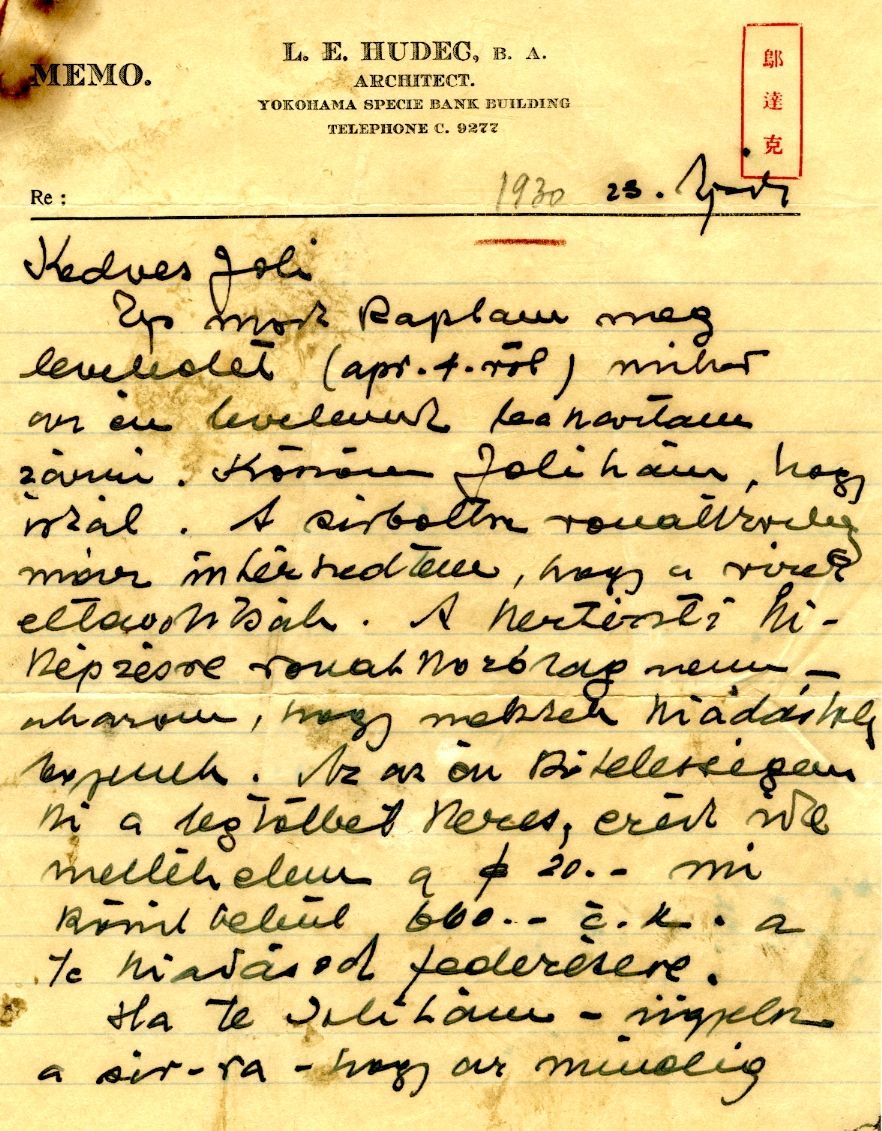 MEMO.
L. E. HUDEC, B. A.
ARCHITECT.
YOKOHAMA SPECIE BANK BUILDING
TELEPHONE C. 9277
鄔
達
克
Re :
1930 23.
Kedves Joli
Ép most kaptam meg
leveledet (apr. 4.-ről) mihor
az én levelemet be akartam
zárni. Köszönöm Jolikám, hogy
írtál. A sirboltra vonatkozolag
már intézkedtem, hogy a vizet
eltavolitsák. A kertészti ki-
képzésre vonatkozólag nem
akarom, hogy nektek kiadástok
legyenek. Az az én kötelességem
ki a legtöbbet keres, ezért ide
mellékelem a $ 20.-- mi
körül belül 660.-- č. K. a
te kiadásod federésere.
Ha te Jolikám - ügyelsz
a sir-ra - hogy az mindig